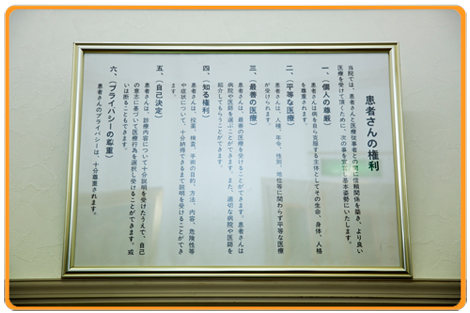 患者さんの権利
当院では、患者さんと医療従事者との間に信頼関係を築き、より良い
医療を受けて頂くために、次の事を宣言し基本姿勢にいたします。
一、(個人の尊厳)
患者さんは病を自ら克服する主体としてその生命、身体、人格
を尊重されます。
二、(平等な医療)
患者さんは、人種、年令、性別、地位等に関わらず平等な医療
が受けられます。
三、(最善の医療)
患者さんは、最善の医療を受けることができます。患者さんは
病院や医師を選ぶことができます。また、適切な病院や医師を
紹介してもらうことができます。
四、(知る権利)
患者さんは、投薬、検査、手術の目的、方法、内容、危険性等
や症状について、十分納得できるまで説明を受けることができ
ます。
五、(自己決定)
患者さんは、診療内容について十分説明を受けたうえで、自己
の意志に基づいて医療行為を選択し受けることができます。或
いは断ることもできます。
六、(プライバシーの尊重)
患者さんのプライバシーは、十分尊重されます。